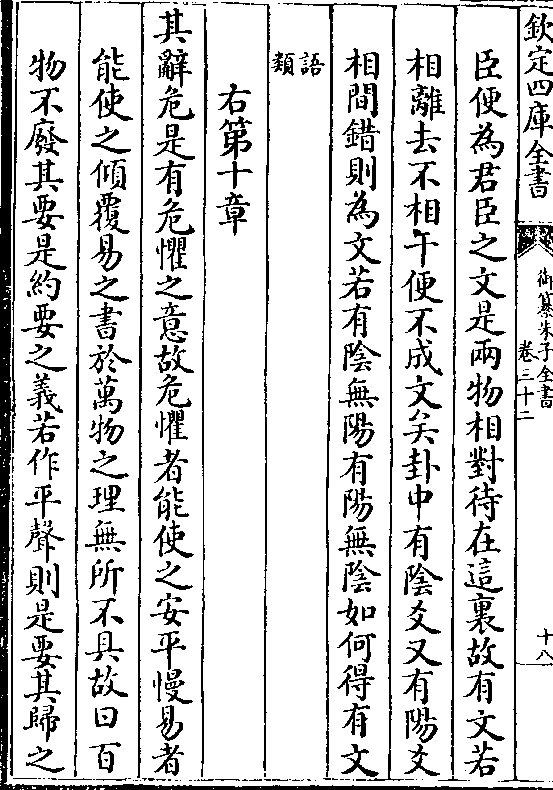 欽定四庫全書
御纂朱子全書
卷三十二
十八
臣便為君臣之文是兩物相對待在這裏故有文若
相離去不相干便不成文矣卦中有陰爻又有陽爻
相間錯則為文若有陰無陽有陽無陰如何得有文
語類
右第十章
其辭危是有危懼之意故危懼者能使之安平慢易者
能使之傾覆易之書於萬物之理無所不具故曰百
物不廢其要是約要之義若作平聲則是要其歸之